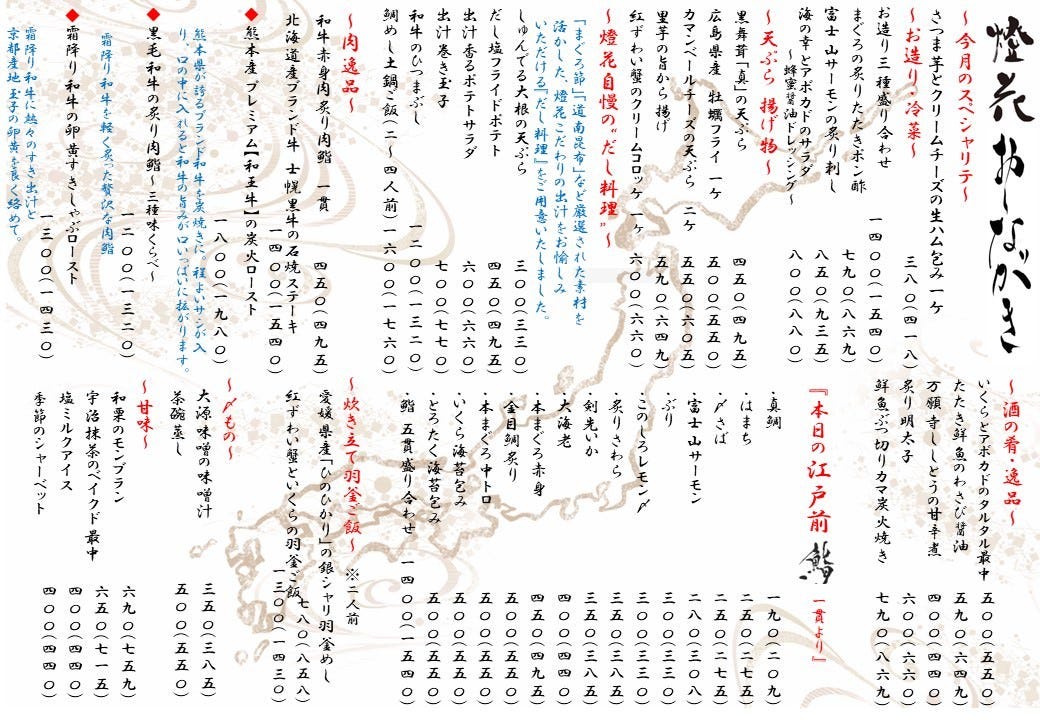 燈花おしながき
～今月のスペシャリテ～
さつま芋とクリームチーズの生ハム包み一ケ 三八〇(四一八)
～お造り・冷菜～
お造り三種盛り合わせ 一四〇〇(一五四〇)
まぐろの炙りたたきポン酢 七九〇(八六九)
富士山サーモンの炙り刺し 八五〇(九三五)
海の幸とアボカドのサラダ 八〇〇(八八〇)
～蜂蜜醤油ドレッシング～
～天ぷら 揚げ物～
黒舞茸「真」の天ぷら 四五〇(四九五)
広島県産 牡蠣フライ 一ケ 五〇〇(五五〇)
カマンベールチーズの天ぷら 二ケ 五五〇(六〇五)
里芋の旨から揚げ 五九〇(六四九)
紅ずわい蟹のクリームコロッケ 一ケ 六〇〇(六六〇)
～燈花自慢の“だし料理”～
「まぐろ節」「道南昆布」など厳選された素材を
活かした、燈花こだわりの出汁をお愉しみ
いただける「だし料理」をご用意いたしました。
しゅんでる大根の天ぷら 三〇〇(三三〇)
だし塩フライドポテト 四五〇(四九五)
出汁香るポテトサラダ 六〇〇(六六〇)
出汁巻き玉子 七〇〇(七七〇)
和牛のひつまぶし 一二〇〇(一三二〇)
鯛めし土鍋ご飯(二～四人前) 一六〇〇(一七六〇)
～肉逸品～
和牛赤身肉炙り肉鮨 一貫 四五〇(四九五)
北海道産ブランド牛 士幌黒牛の石焼ステーキ 一四〇〇(一五四〇)
◆熊本産プレミアム【和王牛】の炭火ロースト 一八〇〇(一九八〇)
熊本県が誇るブランド和牛を炭焼きに。程よいサシが入
り、口の中に入れると和牛の旨みが口いっぱいに拡がります。
◆黒毛和牛の炙り肉鮨～三種味くらべ～ 一二〇〇(一三二〇)
霜降り和牛を軽く炙った贅沢な肉鮨
◆霜降り和牛の卵黄すきしゃぶロースト 一三〇〇(一四三〇)
霜降り和牛に熱々のすき出汁と
京都産地玉子の卵黄を良く絡めて。
～酒の肴・逸品～
いくらとアボカドのタルタル最中 五〇〇(五五〇)
たたき鮮魚のわさび醤油 五九〇(六四九)
万願寺ししとうの甘辛煮 四〇〇(四四〇)
炙り明太子 六〇〇(六六〇)
鮮魚ぶつ切りカマ炭火焼き 七九〇(八六九)
『本日の江戸前鮨 一貫より』
・真鯛 一九〇(二〇九)
・はまち 二五〇(二七五)
・〆さば 二五〇(二七五)
・富士山サーモン 二八〇(三〇八)
・ぶり 三〇〇(三三〇)
・このしろレモン〆 三〇〇(三三〇)
・炙りさわら 三五〇(三八五)
・剣先いか 三五〇(三八五)
・大海老 四〇〇(四四〇)
・本まぐろ赤身 四五〇(四九五)
・金目鯛炙り 五〇〇(五五〇)
・本まぐろ中トロ 五〇〇(五五〇)
・いくら海苔包み 五〇〇(五五〇)
・とろたく海苔包み 五〇〇(五五〇)
鮨 五貫盛り合わせ 一四〇〇(一五四〇)
～炊き立て羽釜ご飯～ ※二人前
愛媛県産「ひのひかり」の銀シャリ羽釜めし 七八〇(八五八)
紅ずわい蟹といくらの羽釜ご飯 一三〇〇(一四三〇)
～〆もの～
大源味噌の味噌汁 三五〇(三八五)
茶碗蒸し 五〇〇(五五〇)
～甘味～
和栗のモンブラン 六九〇(七五九)
宇治抹茶のベイクド最中 六五〇(七一五)
塩ミルクアイス 四〇〇(四四〇)
季節のシャーベット 四〇〇(四四〇)